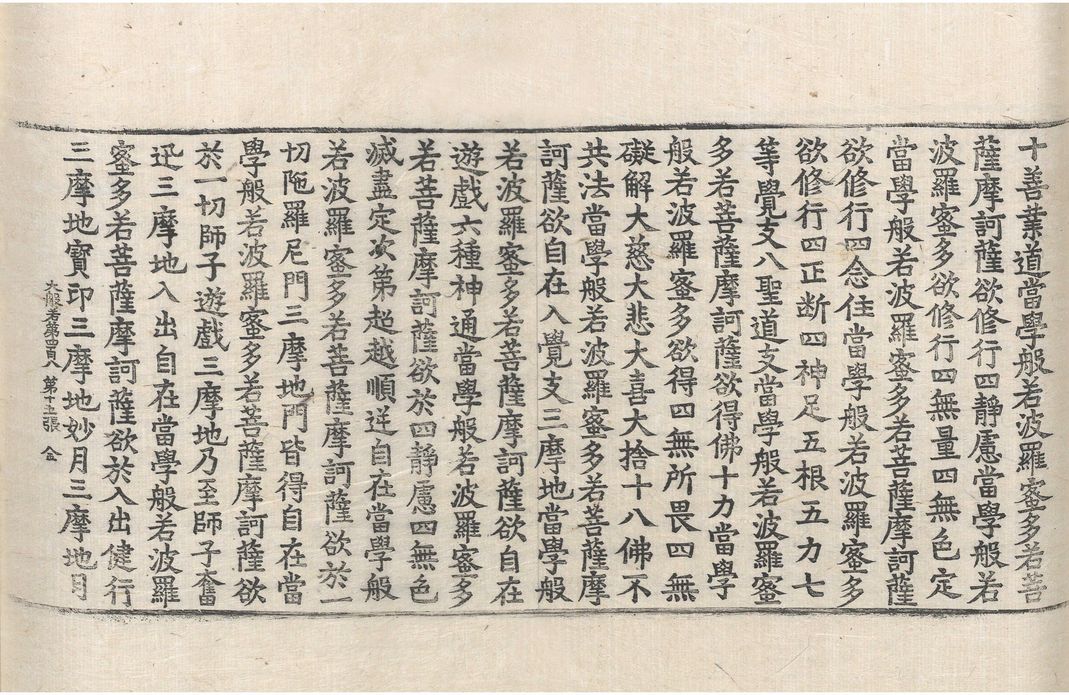 十善業道當學般若波羅蜜多若菩
薩摩訶薩欲修行四靜慮當學般若
波羅蜜多欲修行四無量四無色定
當學般若波羅蜜多若菩薩摩訶薩
欲修行四念住當學般若波羅蜜多
欲修行四正断四神足五根五力七
等覺支八聖道支當學般若波羅蜜
多若菩薩摩訶薩欲得佛十力當學
般若波羅蜜多欲得四無所畏四無
礙解大慈大悲大喜大捨十八佛不
共法當學般若波羅蜜多若菩薩摩
訶薩欲自在入覺支三摩地當學般
若波羅蜜多若菩薩摩訶薩欲自在
遊戲六種神通當學般若波羅蜜多
若菩薩摩訶薩欲於四靜慮四無色
滅盡定次第超越順逆自在當學般
若波羅蜜多若菩薩摩訶薩欲於一
切陁羅尼門三摩地門皆得自在當
學般若波羅蜜多若菩薩摩訶薩欲
於一切師子遊戲三摩地乃至師子奮
迅三摩地入出自在當學般若波羅
蜜多若菩薩摩訶薩欲於入出健行
大般若第四百八 第十五張 金
三摩地寶印三摩地妙月三摩地月